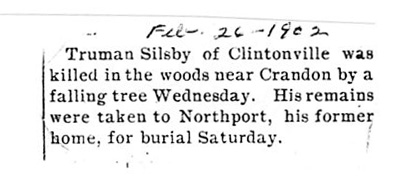 Feb. 26-1902
Truman Silsby of Clintonville was
killed in the woods near Crandon by a
falling tree Wednesday. His remains
were taken to Northport, his former
home, for burial Saturday.